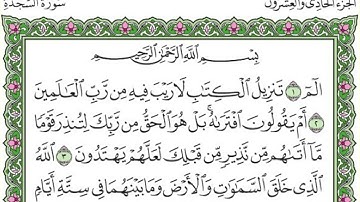 الجزء الحادي والعشرون سورة السجدة
بِسْمِ ٱللَّهِ ٱلرَّحْمَٰنِ ٱلرَّحِيمِ
الٓمٓ ١ تَنزِيلُ ٱلْكِتَٰبِ لَا رَيْبَ فِيهِ مِن رَّبِّ ٱلْعَٰلَمِينَ
٢ أَمْ يَقُولُونَ ٱفْتَرَىٰهُ ۚ بَلْ هُوَ ٱلْحَقُّ مِن رَّبِّكَ لِتُنذِرَ قَوْمًا
مَّآ أَتَىٰهُم مِّن نَّذِيرٍ مِّن قَبْلِكَ لَعَلَّهُمْ يَهْتَدُونَ ٣ ٱللَّهُ
ٱلَّذِى خَلَقَ ٱلسَّمَٰوَٰتِ وَٱلْأَرْضَ وَمَا بَيْنَهُمَا فِى سِتَّةِ أَيَّامٍ